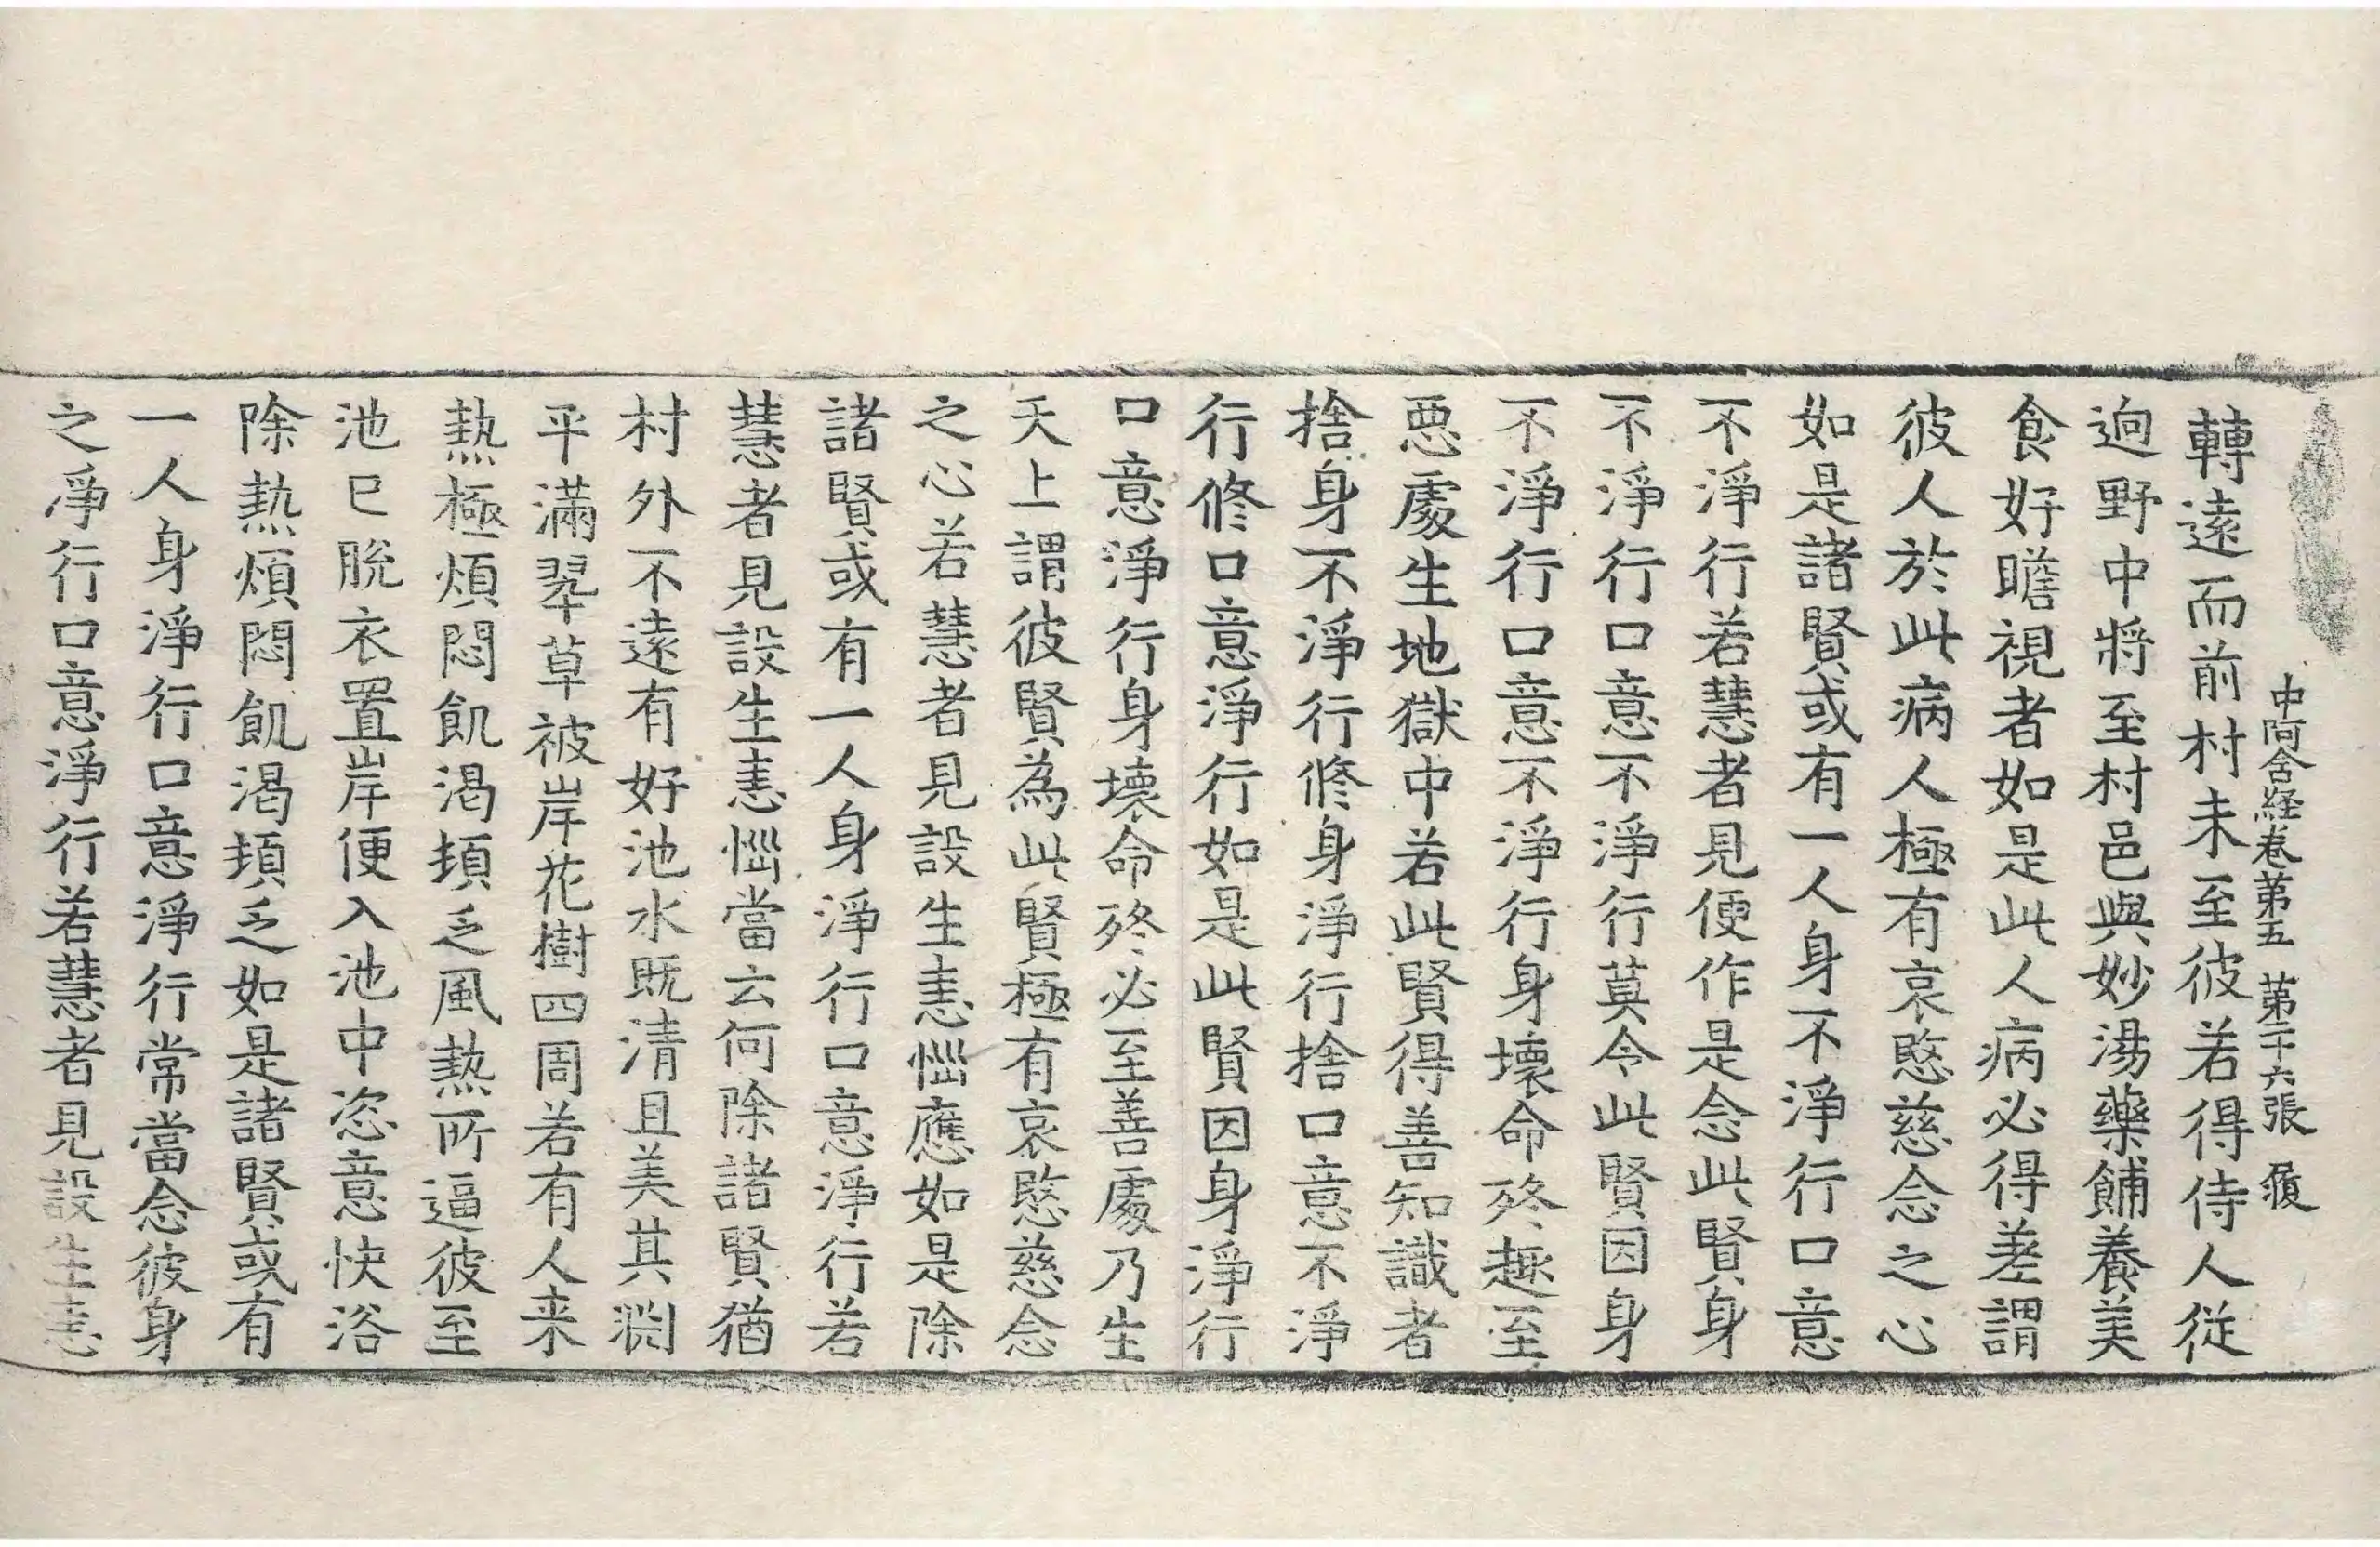 中阿含経卷第五　第二十六張　履
轉遠而前村未至彼若得侍人従
逈野中將至村邑與妙湯藥餔養美
食好瞻視者如是此人病必得差謂
彼人於此病人極有哀愍慈念之心
如是諸賢或有一人身不淨行口意
不淨行若慧者見便作是念此賢身
不淨行口意不淨行莫令此賢因身
不淨行口意不淨行身壞命終趣至
惡處生地獄中若此賢得善知識者
捨身不淨行修身淨行捨口意不淨
行修口意淨行如是此賢因身淨行
口意淨行身壞命終必至善處乃生
天上謂彼賢為此賢極有哀愍慈念
之心若慧者見設生恚惱應如是除
諸賢或有一人身淨行口意淨行若
慧者見設生恚惱當云何除諸賢猶
村外不遠有好池水既清且美其淵
平滿翠草被岸花樹四周若有人来
熱極煩悶飢渴頓乏風熱所逼彼至
池已脫衣置岸便入池中恣意快浴
除熱煩悶飢渴頓乏如是諸賢或有
一人身淨行口意淨行常當念彼身
之淨行口意淨行若慧者見設生恚